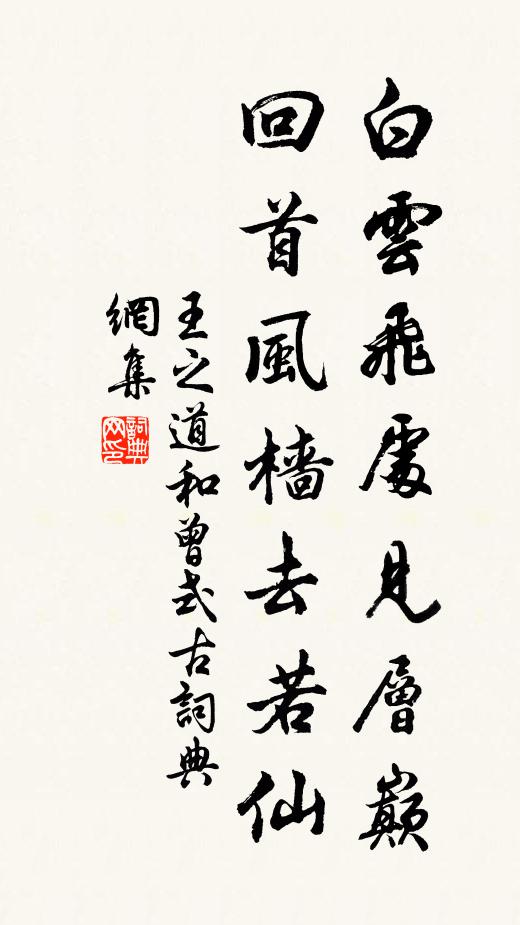 白雲飛處見層巔
回首風檣去若仙
王之道和曾式古詞典
網集
詞典
网印